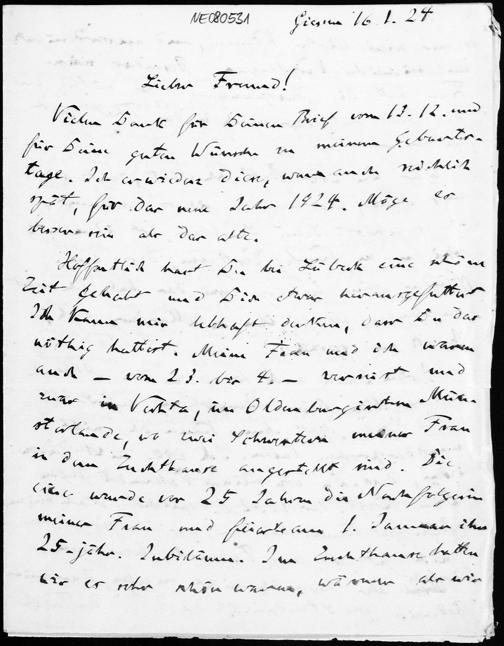 NE080531
Giessen 16. 1. 24
Lieber Freund!
Vielen Dank für Deinen Brief vom 13. 12. und
für Deine guten Wünsche zu meinem Geburts-
tage. Ich erwiedere diese, wenn auch reichlich
spät, für das neue Jahr 1924. Möge es
besser sein als das alte.
Hoffentlich hast Du bei Lübeck eine schöne
Zeit gehabt und Dich etwas herausgefuttert.
Ich kann mir lebhaft denken, dass Du das
nöthig hattest. Meine Frau und ich waren
auch – vom 23. bis 4. – verreist und
zwar in Vechta, im Oldenburgischen Mün-
sterlande, wo zwei Schwestern meiner Frau
in dem Zuchthause angestellt sind. Die
eine wurde vor 25 Jahren die Nachfolgerin
meiner Frau und feierte am 1. Januar ihr
25-jähr. Jubiläum. Im Zuchthause hatten
wir es sehr schön warm, wärmer als wir